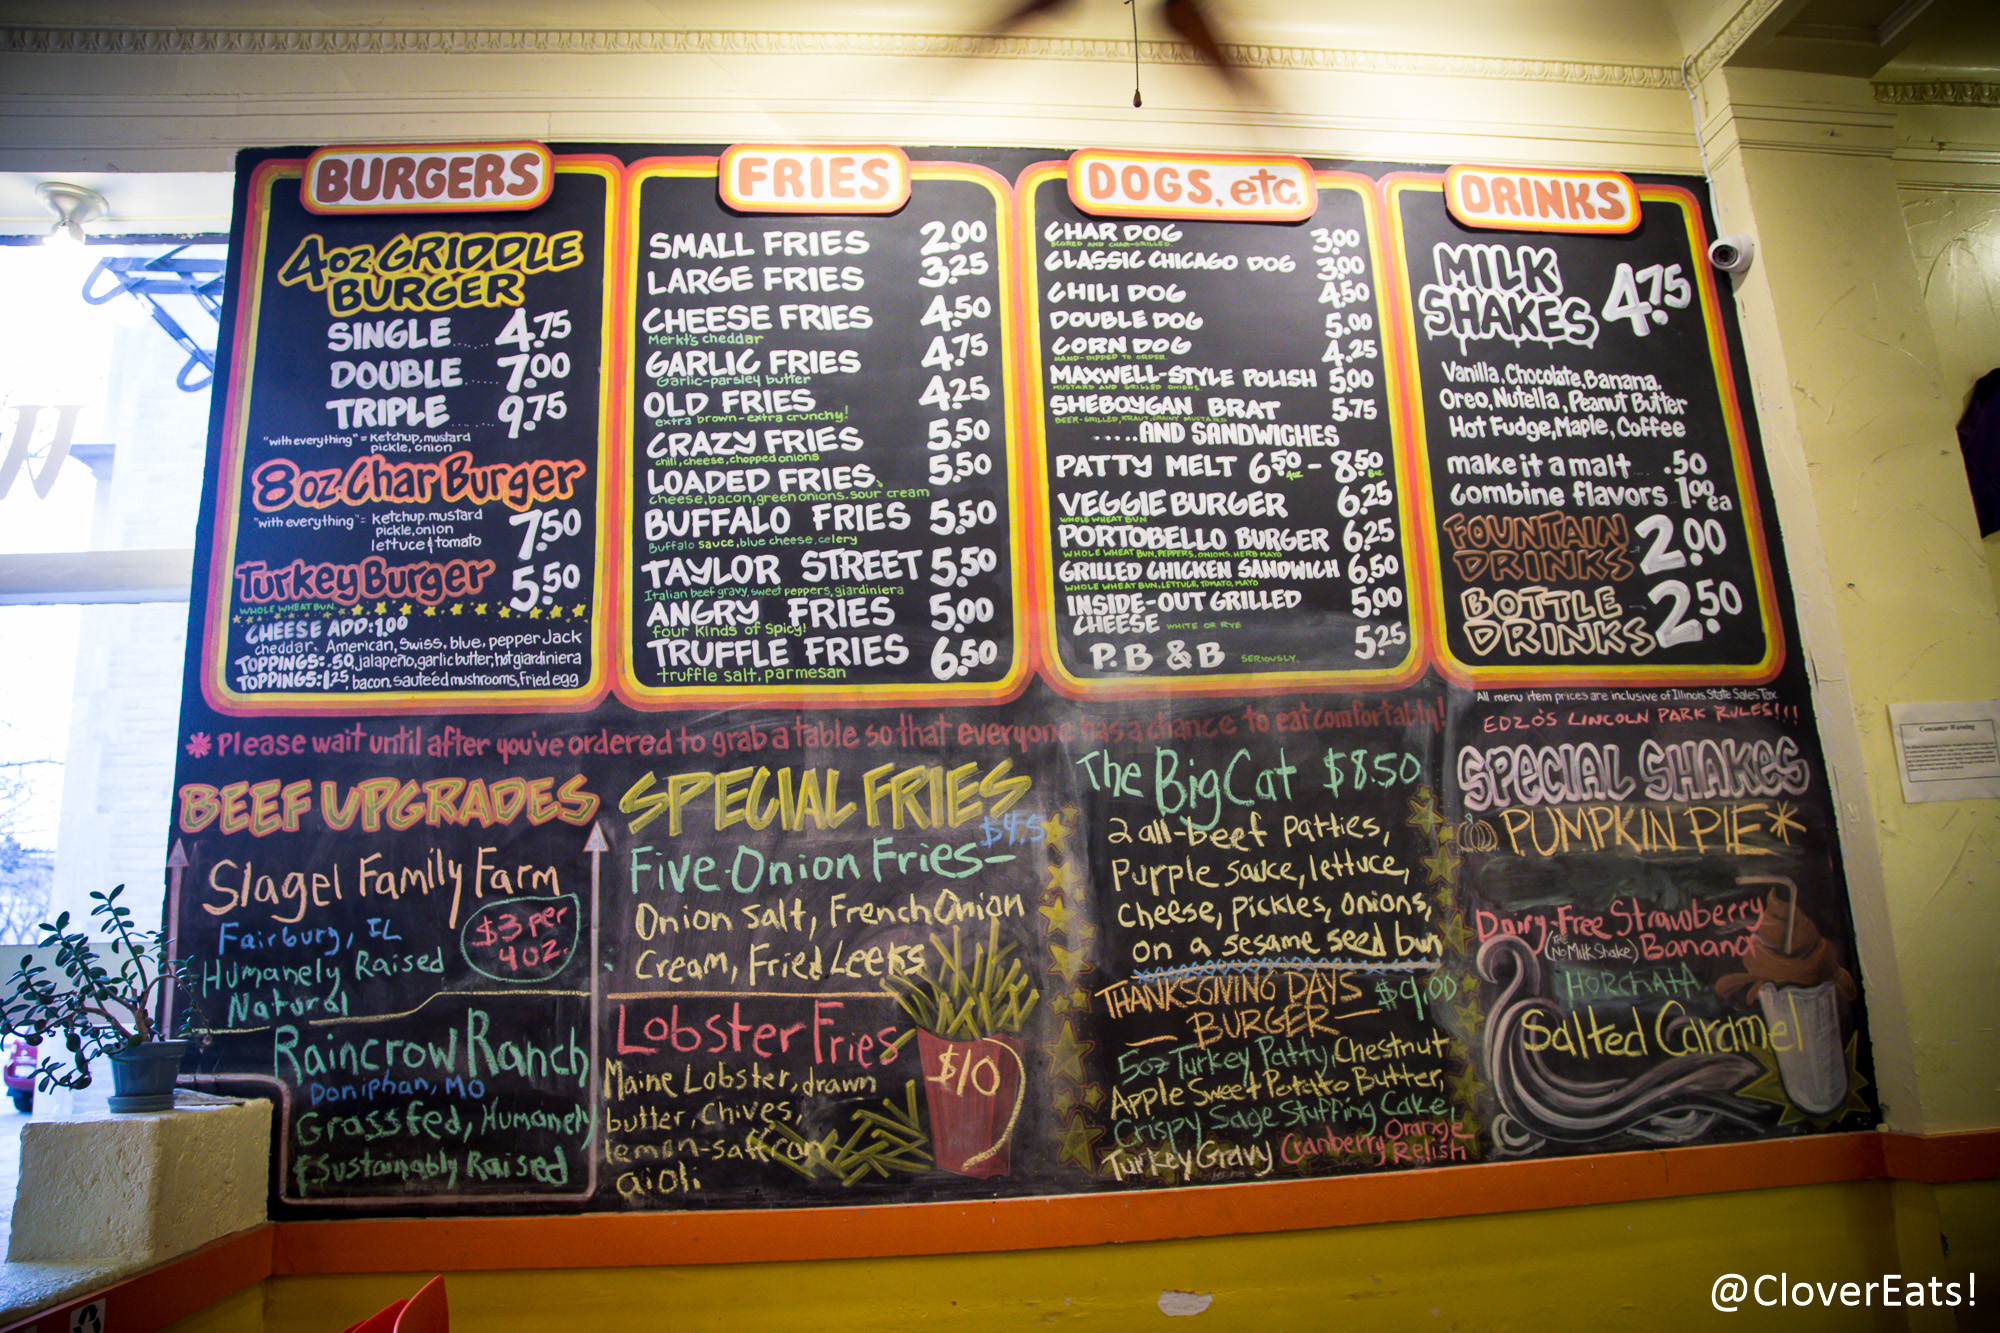 BURGERS
4oz GRIDDLE
BURGER
SINGLE 4.75
DOUBLE 7.00
TRIPLE 9.75
"with everything" = ketchup, mustard
pickle, onion
8oz Char Burger
"with everything" = ketchup, mustard
pickle, onion
lettuce & tomato
7.50
Turkey Burger 5.50
WHOLE WHEAT BUN
CHEESE ADD: 1.00
cheddar, American, Swiss, blue, pepper Jack
TOPPINGS: .50, jalapeño, garlic butter, hot giardiniera
TOPPINGS: 1.25, bacon, sauteed mushrooms, fried egg
FRIES
SMALL FRIES 2.00
LARGE FRIES 3.25
CHEESE FRIES 4.50
Merkt's cheddar
GARLIC FRIES 4.75
Garlic-parsley butter
OLD FRIES 4.25
extra brown-extra crunchy!
CRAZY FRIES 5.50
chili, cheese, chopped onions
LOADED FRIES 5.50
cheese, bacon, green onions, sour cream
BUFFALO FRIES 5.50
Buffalo sauce, blue cheese, celery
TAYLOR STREET 5.50
Italian beef gravy, sweet peppers, giardiniera
ANGRY FRIES 5.00
four kinds of spicy!
TRUFFLE FRIES 6.50
truffle salt, parmesan
DOGS, etc.
CHAR DOG 3.00
SCORED AND CHAR-GRILLED
CLASSIC CHICAGO DOG 3.00
CHILI DOG 4.50
DOUBLE DOG 5.00
CORN DOG 4.25
HAND-DIPPED TO ORDER
MAXWELL-STYLE POLISH 5.00
MUSTARD AND GRILLED ONIONS
SHEBOYGAN BRAT 5.75
BEER-GRILLED, KRAUT, GRAINY MUSTARD
.....AND SANDWICHES
PATTY MELT 6.50 4oz - 8.50 8oz
VEGGIE BURGER 6.25
WHOLE WHEAT BUN
PORTOBELLO BURGER 6.25
WHOLE WHEAT BUN, PEPPERS, ONIONS, HERB MAYO
GRILLED CHICKEN SANDWICH 6.50
WHOLE WHEAT BUN, LETTUCE, TOMATO, MAYO
INSIDE-OUT GRILLED 5.00
CHEESE WHITE OR RYE
P.B & B SERIOUSLY. 5.25
DRINKS
MILK
SHAKES 4.75
Vanilla, Chocolate, Banana,
Oreo, Nutella, Peanut Butter
Hot Fudge, Maple, Coffee
make it a malt .50
combine flavors 1.00 ea
FOUNTAIN
DRINKS 2.00
BOTTLE
DRINKS 2.50
All menu item prices are inclusive of Illinois State Sales Tax
* Please wait until after you've ordered to grab a table so that everyone has a chance to eat comfortably!
EDZO'S LINCOLN PARK RULES!!!
BEEF UPGRADES
Slagel Family Farm
Fairbury, IL
Humanely Raised
Natural
$3 per
4 oz.
Raincrow Ranch
Doniphan, MO
Grassfed, Humanely
& Sustainably Raised
SPECIAL FRIES
$4.5
Five-Onion Fries-
Onion Salt, French Onion
Cream, Fried Leeks
Lobster Fries
Maine Lobster, drawn
butter, chives,
lemon-saffron
aioli
$10
The Big Cat $8.50
2 all-beef patties,
Purple sauce, lettuce,
cheese, pickles, onions,
on a sesame seed bun
THANKSGIVING DAYS $9.00
- BURGER -
5oz Turkey Patty, Chestnut
Apple Sweet Potato Butter,
Crispy Sage Stuffing Cake,
Turkey Gravy Cranberry Orange
Relish
SPECIAL SHAKES
PUMPKIN PIE*
Dairy-Free Strawberry
(THE No Milk Shake) Banana
HORCHATA
Salted Caramel
Consumer Warning
@CloverEats!